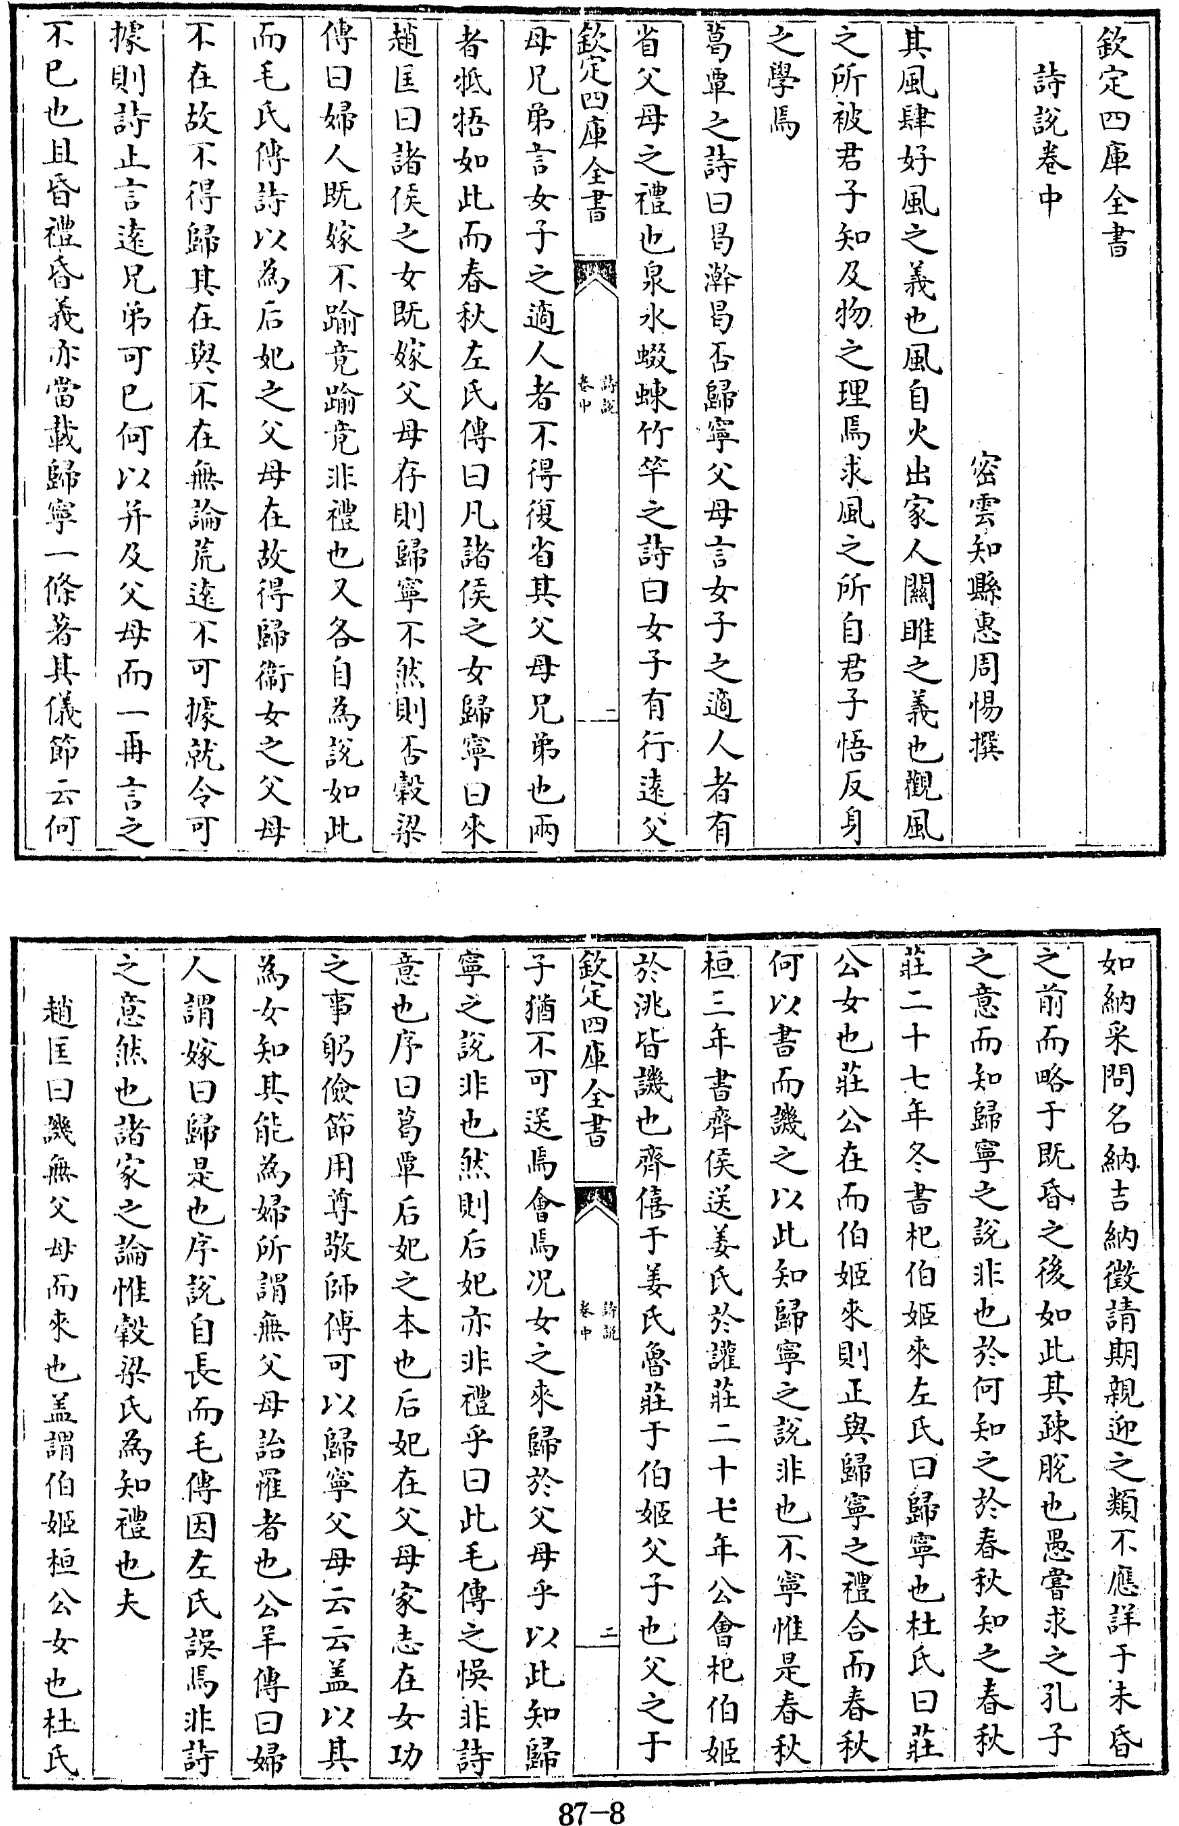 欽定四庫全書
詩説卷中
密雲知縣惠周惕撰
其風肆好風之義也風自火出家人關雎之義也觀風
之所被君子知及物之理焉求風之所自君子悟反身
之學焉
葛覃之詩曰曷澣曷否歸寧父母言女子之適人者有
省父母之禮也泉水蝃蝀竹竿之詩曰女子有行遠父
欽定四庫全書
詩説
卷中
一
母兄弟言女子之適人者不得復省其父母兄弟也兩
者牴牾如此而春秋左氏傳曰凡諸侯之女歸寧曰來
趙匡曰諸侯之女既嫁父母存則歸寧不然則否穀梁
傳曰婦人既嫁不踰竟踰竟非禮也又各自為説如此
而毛氏傳詩以為后妃之父母在故得歸衞女之父母
不在故不得歸其在與不在無論荒遠不可據就令可
據則詩止言遠兄弟可已何以并及父母而一再言之
不已也且昏禮昏義亦當載歸寧一條著其儀節云何
如納采問名納吉納徵請期親迎之類不應詳于未昏
之前而略于既昏之後如此其疎脱也愚嘗求之孔子
之意而知歸寧之説非也於何知之於春秋知之春秋
莊二十七年冬書杞伯姬來左氏曰歸寧也杜氏曰莊
公女也莊公在而伯姬來則正與歸寧之禮合而春秋
何以書而譏之以此知歸寧之説非也不寧惟是春秋
桓三年書齊侯送姜氏於讙莊二十七年公會杞伯姬
於洮皆譏也齊僖于姜氏魯莊于伯姬父子也父之于
欽定四庫全書
詩説
卷中
二
子猶不可送焉會焉况女之來歸於父母乎以此知歸
寧之説非也然則后妃亦非禮乎曰此毛傳之悞非詩
意也序曰葛覃后妃之本也后妃在父母家志在女功
之事躬儉節用尊敬師傅可以歸寧父母云云盖以其
為女知其能為婦所謂無父母詒罹者也公羊傳曰婦
人謂嫁曰歸是也序説自長而毛傳因左氏誤焉非詩
之意然也諸家之論惟穀梁氏為知禮也夫
趙匡曰譏無父母而來也盖謂伯姬桓公女也杜氏
87-8